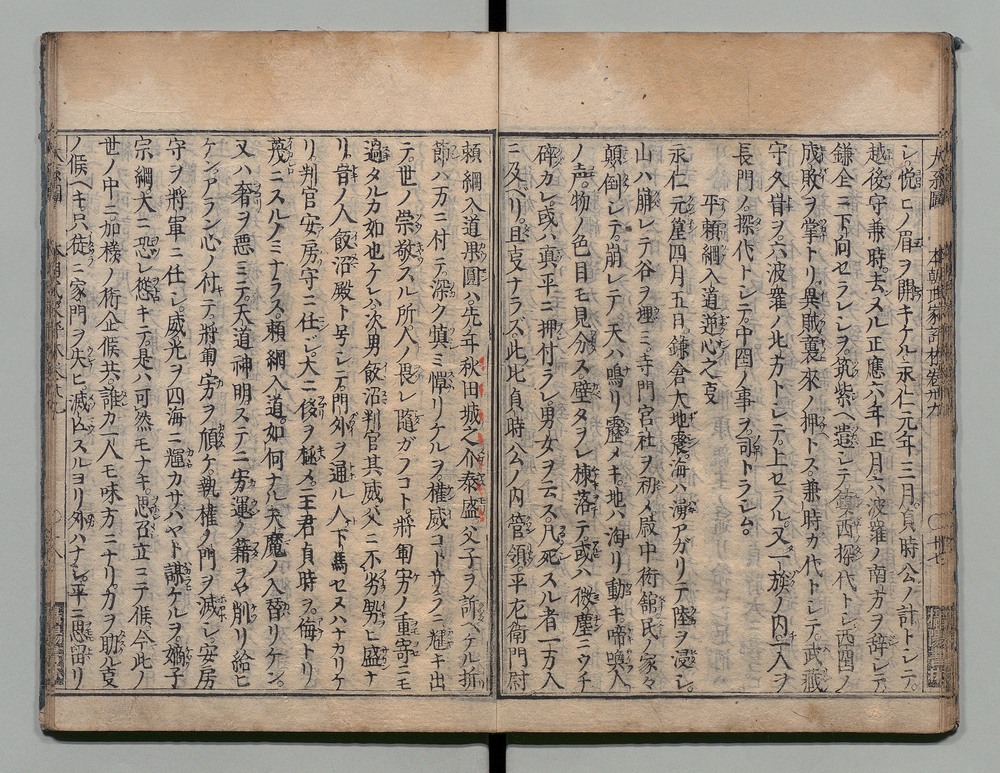 シ。悦ヒノ眉ヲ開キケル永仁元年三月。貞時公ノ計トシテ。
越後ノ守兼時。去ヌル正應六年正月六波羅ノ南方ヲ辞シテ
鎌仝ニ下向セラレシヲ。筑紫ヘ遣シテ鎮西探代トシ。西国ノ
成敗ヲ掌トリ。異賊襲來ノ押トス。兼時カ代トシテ。武藏
守久甘ヲ六波羅ノ北方トシテ。上セラル。又一族ノ内一人ヲ
長門ノ探代トシテ。中国ノ事ヲ司トラシム。
平頼綱入道逆心之
永仁元年四月五日。鎌倉大地震。海ハ涌アガリテ陸ヲ浸シ。
山ハ崩レテ谷ヲ埋ミ。寺門宮社ヲ初メ殿中術舘民ノ家々
顛倒シテ。崩レテ天ハ鳴リ震メキ。地ハ海リ動キ啼喚人
ノ声。物ノ色目モ見分ス。壁タヲレ棟落テ。或ハ微塵ニウチ
碎カレ。或ハ真平ニ押付ラレ男女ヲ云ス。凡死スル者一万人
ニ及ヘリ。且ナラズ。此比貞時公ノ内。管領。平左衛門尉
頼綱入道果圓ハ先年秋田城之介泰盛父子ヲ訴ヘケル折
節ハ万ニ付テ。深ク慎ミ憚リケルヲ。權威コトサラニ輝キ出
テ。世ノ崇敬スル所人ノ畏レ隨ガフコト。將軍家ノ重寄ニモ
過タルカ如也ケレハ次男飯沼判官其威父ニ不劣勢ヒ盛ナ
リ。昔ノ人飯沼殿ト号シテ。門外ヲ通ル人。下馬セヌハナカリケ
リ。判官安房ノ守ニ任ジ。大ニ侈ヲ極メ。主君貞時ヲ。侮トリ
茂ニスルノミナラス。頼綱入道。如何ナル天魔ノ入替リケン。
又ハ奢ヲ悪ミテ。天道神明ステニ家運ノ籍ヲヤ削リ給ヒ
ケン。アラン心ノ付テ。將軍家ヲ傾ケ。執權ノ門ヲ滅シ安房
守ヲ將軍ニ仕シ。威光ヲ四海ニ輝カサハヤト謀ケルヲ。嫡子
宗綱大ニ恐レ慫キテ。是ハ可然モナキ。思召立ニテ候今此ノ
世ノ中ニ。加樣ノ術企候共。誰カ一人モ味方ニナリ。力ヲ助ル
ノ候ヘキ只徒ニ家門ヲ失ヒ。滅亡スルヨリ外ハナシ。平ニ思留リ